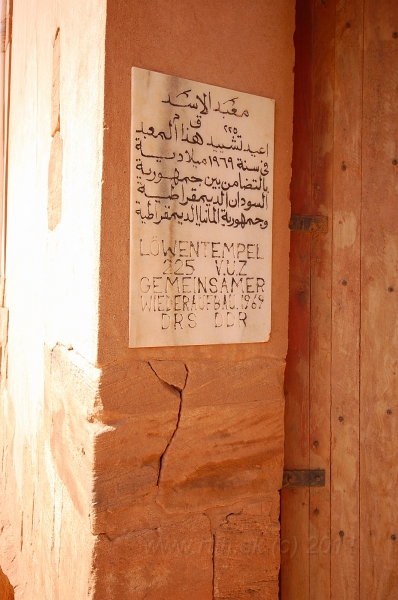 معبد الاسد
٢٢٥ ق م
اعيد تشييد هذا المعبد
في سنة ١٩٦٩ ميلادية
بالتضامن بين جمهورية
السودان الديمقراطية
وجمهورية المانيا الديمقراطية
LÖWENTEMPEL
225 V.U.Z
GEMEINSAMER
WIEDERAUFBAU.1969
DRS DDR